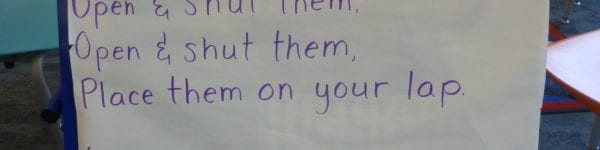 Open & shut them,
Open & shut them,
Place them on your lap.